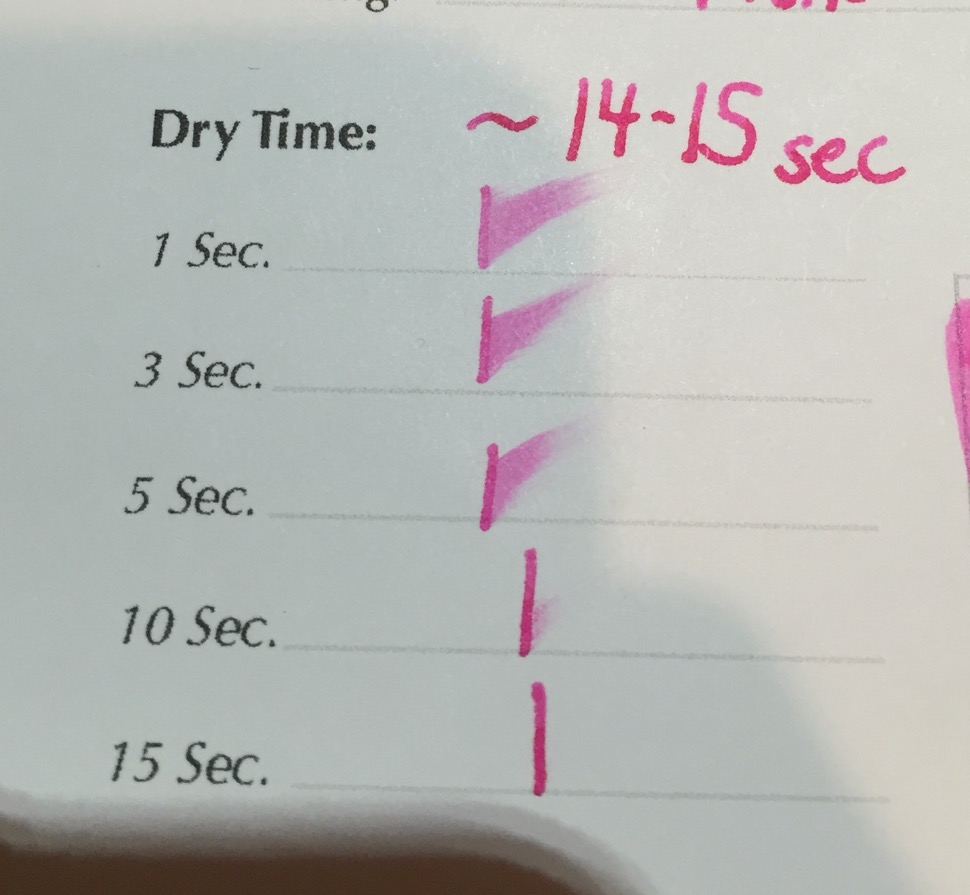 Dry Time: ~ 14-15 sec
1 Sec.
3 Sec.
5 Sec.
10 Sec.
15 Sec.